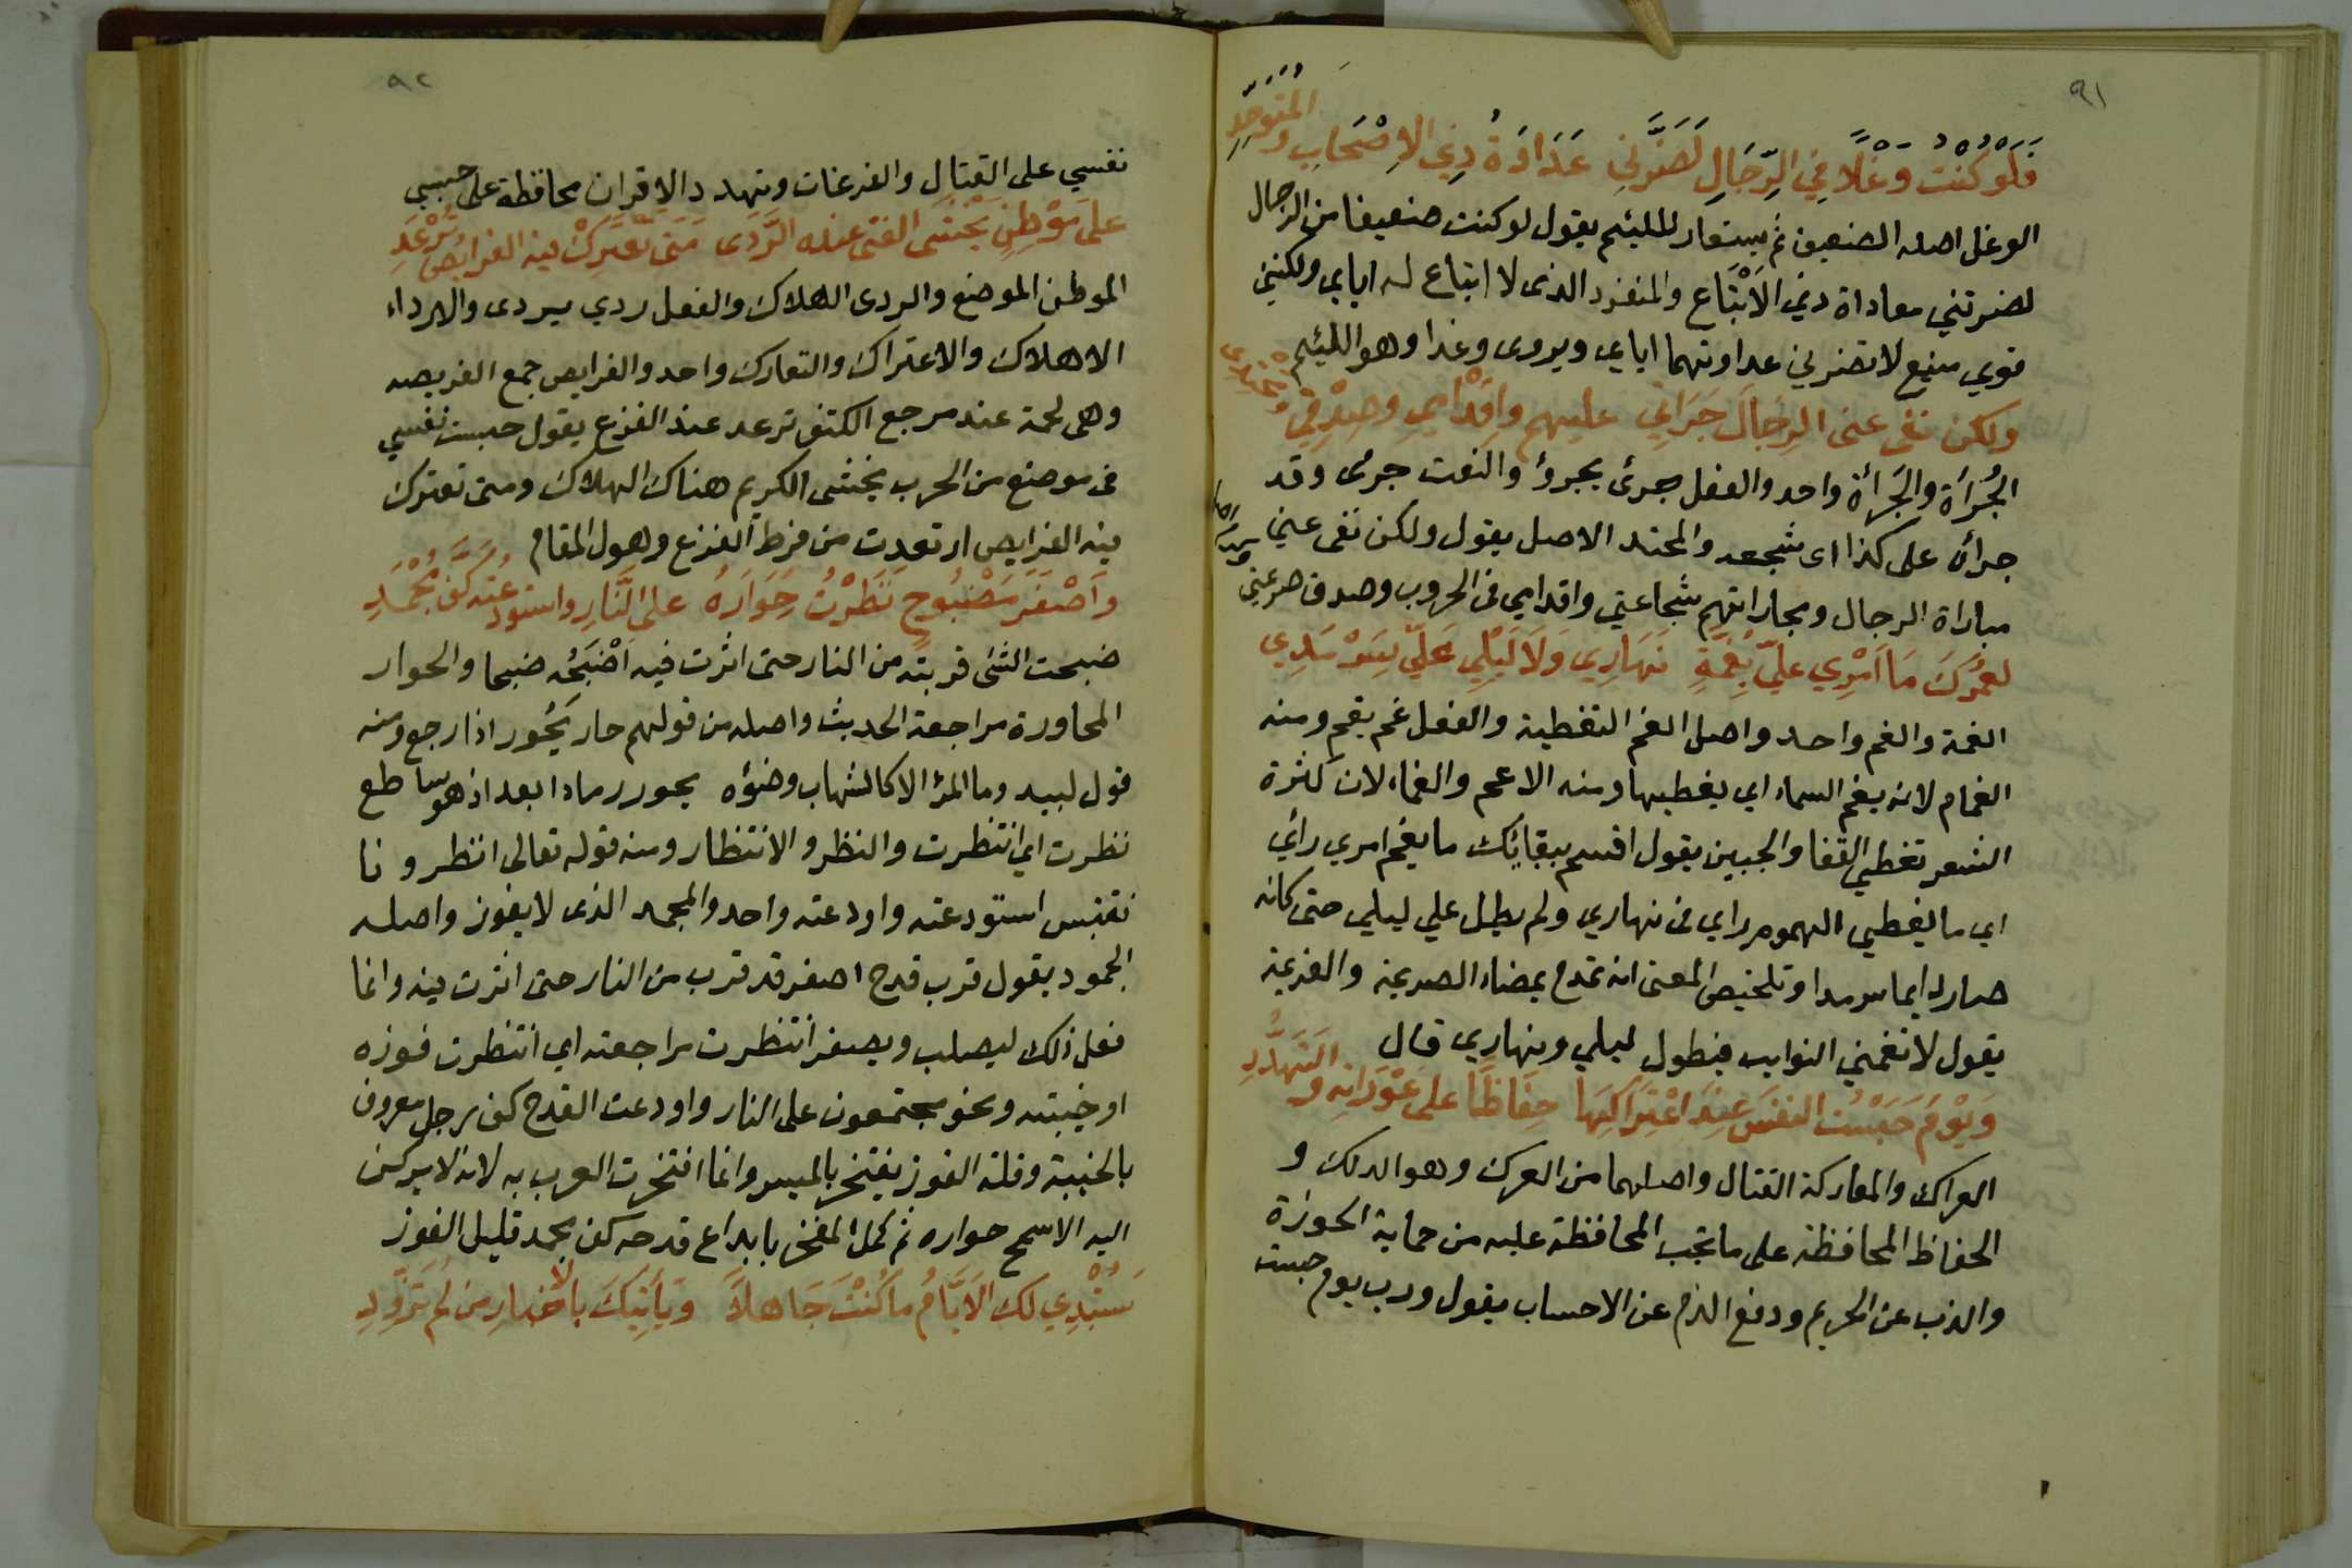 ٩١
فَلَوْ كُنْتُ وَغْلًا فِي الرِّجَالِ لَضَرَّنِي عَدَاوَةُ ذِي الْاَصْحَابِ وَالْمُتَوَحِّدِ
الوغل اصله الضعيف ثم يستعار للئيم يقول لو كنت ضعيفا من الرجال
لضرتني معاداة ذي الاَتْبَاع والمنفرد الذى لا اتباع له اياي ولكنني
قوي منيع لا تضرني عداوتهما اياي ويروى وغدا وهو اللئيم
ولكن نفى عنى الرِّجَالَ جَرَائِي عليهم واِقْدَامِي وصِدْقِي وَمَحْتِدِي
الجُرْأَة والجَرَأَة واحد والفعل جرئ يجرؤ والنعت جرئ وقد
جرأه على كذا اى شجعه والمحتد الاصل يقول ولكن نفى عني
مباراة الرجال ومجاراتهم شجاعتي واقدامي فى الحروب وصدق صرعتي
لعَمْرُكَ مَا اَمْرِي عَلَيَّ بِغُمَّةٍ نَهَارِي وَلَا لَيْلِي عَلَيَّ بِسَرْمَدِي
الغمة والغم واحد واصل الغم التغطية والفعل غم يغم ومنه
الغمام لانه يغم السماء اي يغطيها ومنه الاغم والغماء لان كثرة
الشعر تغطي القفا والجبين يقول اقسم ببقائك ما يغم امري رائي
اي ما يغطي الهموم راي فى نهاري ولم يطل علي ليلي حتى كانه
صار دايما سرمدا وتلخيص المعنى انه تمدح بمضاء الصريمة والعزيمة
يقول لا تغمني النوايب فيطول ليلي ونهاري قال
وَيَوْمَ حَبَسْتُ النفْسَ عِنْدَ اعْتِرَاكِهَا حِفَاظًا على عَوْرَاتِهِ وَالتَّهَدُّدِ
العراك والمعاركة القتال واصلهما من العرك وهو الدلك و
الحفاظ المحافظة على ما تجب المحافظة عليه من حماية الحوزة
والذب عن الحريم ودفع الذم عن الاحساب يقول ورب يوم حبست
٩٢
نفسي على القتال والفزعات وتهدد الاقران محافظة على حسبي
على مَوْطِنٍ يَخْشَى الفتى عنده الرَّدَى مَتَى تَعْتَرِكْ فيه الفرايصُ تُرْعَدِ
الموطن الموضع والردى الهلاك والفعل ردي يردى والارداء
الاهلاك والاعتراك والتعارك واحد والفرايص جمع الفريصه
وهى لحمة عند مرجع الكتف ترعد عند الفزع يقول حبست نفسي
فى موضع من الحرب يخشى الكريم هناك الهلاك ومتى تعترك
فيه الفرايص ارتعدت من فرط الفزع وهول المقام
وَاَصْفَرَ مَضْبُوحٍ نَظَرْتُ حِوَارَهُ على النَّارِ واستودعْتُه كَفَّ مُجْمَدِ
ضبحت الشئ قربته من النار حتى اثرت فيه اَضْبَحُه ضبحا والحوار
المحاورة مراجعة الحديث واصله من قولهم حار يَحُور اذا رجع ومنه
قول لبيد وما المرؤ الا كالشهاب وضوئه يحور رمادا بعد اذ هو ساطع
نظرت اي انتظرت والنظر والانتظار ومنه قوله تعالى انظرونا
نقتبس استودعته واودعته واحد والمجمد الذى لا يفوز واصله
الجمود يقول قرب قدح اصفر قد قرب من النار حتى اثرت فيه وانما
فعل ذلك ليصلب ويصفر انتظرت مراجعته اي انتظرت فوزه
او خيبته ونحو مجتمعون على النار واودعت القدح كف رجل معروف
بالخيبة وقلة الفوز يفتخر بالميسر وانما افتخرت العرب به لانه لا يركن
اليه الا سمح حواره ثم كمل المفخر بايداع قدحه كف مجمد قليل الفوز
سَتُبْدِي لك الاَيَّامُ ما كُنْتَ جَاهلًا وَيَأتِيكَ بالاخبارِ من لم تُزَوِّدِ